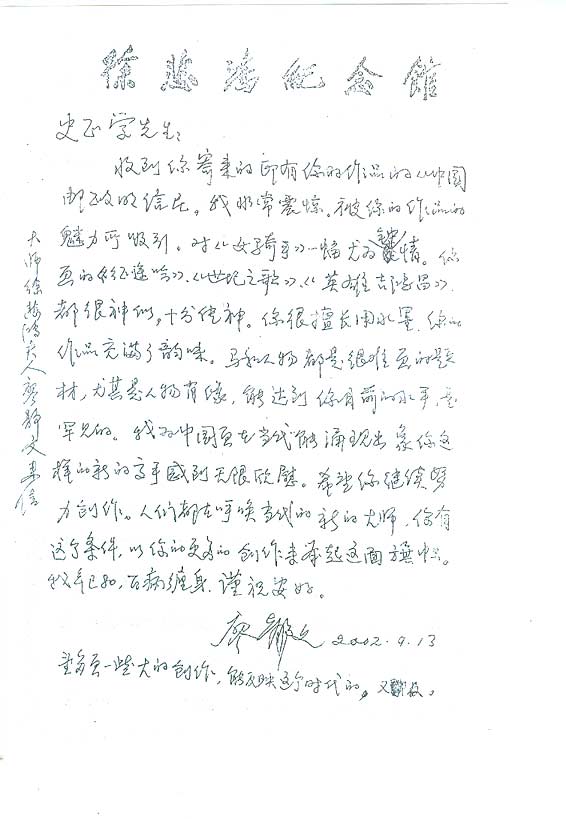 徐悲鸿纪念馆
史正学先生：
收到你寄来的印有你的作品的《中国
邮政明信片》，我非常震惊。被你的作品的
魅力所吸引。对《女骑手》一幅尤为钟情。你
画的《征途吟》、《世纪之歌》、《英雄吉鸿昌》，
都很神似，十分传神。你很擅长用水墨，你的
作品充满了韵味。马和人物都是很难画的题
材，尤其是人物肖像，能达到你目前的水平，是
罕见的。我为中国画在当代能涌现出象你这
样的新的高手感到无限欣慰。希望你继续努
力创作。人们都在呼唤当代的新的大师，你有
这个条件，以你的更多的创作来举起这面旗帜。
我年已80，百病缠身，谨祝安好。
廖静文 2002.9.13
要多画一些大的创作，能反映这个时代的，又及。
大师徐悲鸿夫人廖静文来信